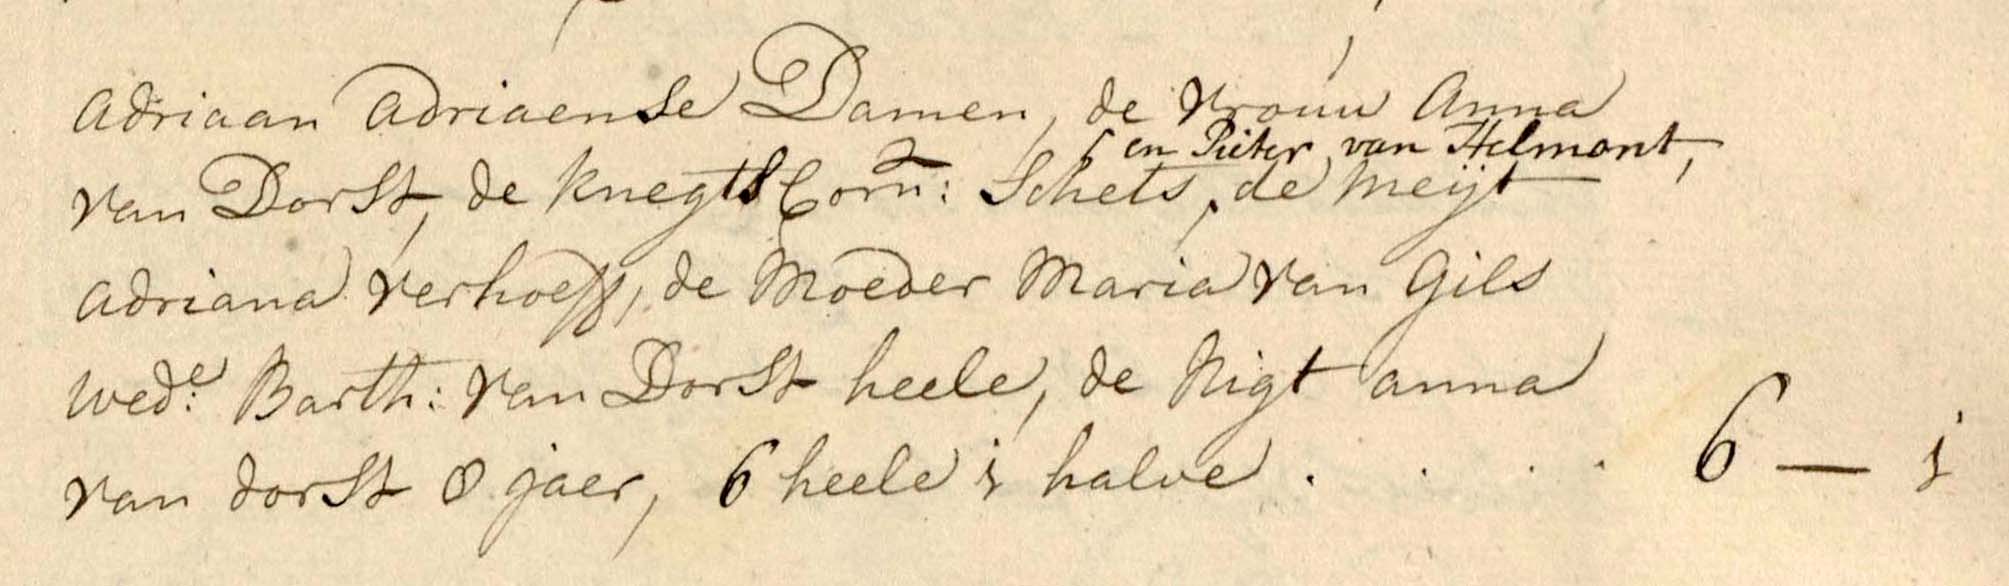 Adriaan Adriaense Damen, de vrouw Anna
en Pieter van Helmont,
van Dorst, de knegts Corn: Schets, de meijt
Adriana verhoeff, de Moeder Maria van Gils
wed:e Barth: van Dorst heele, de Nigt anna
van dorst 8 jaer, 6 heele j halve . . . . 6 — j